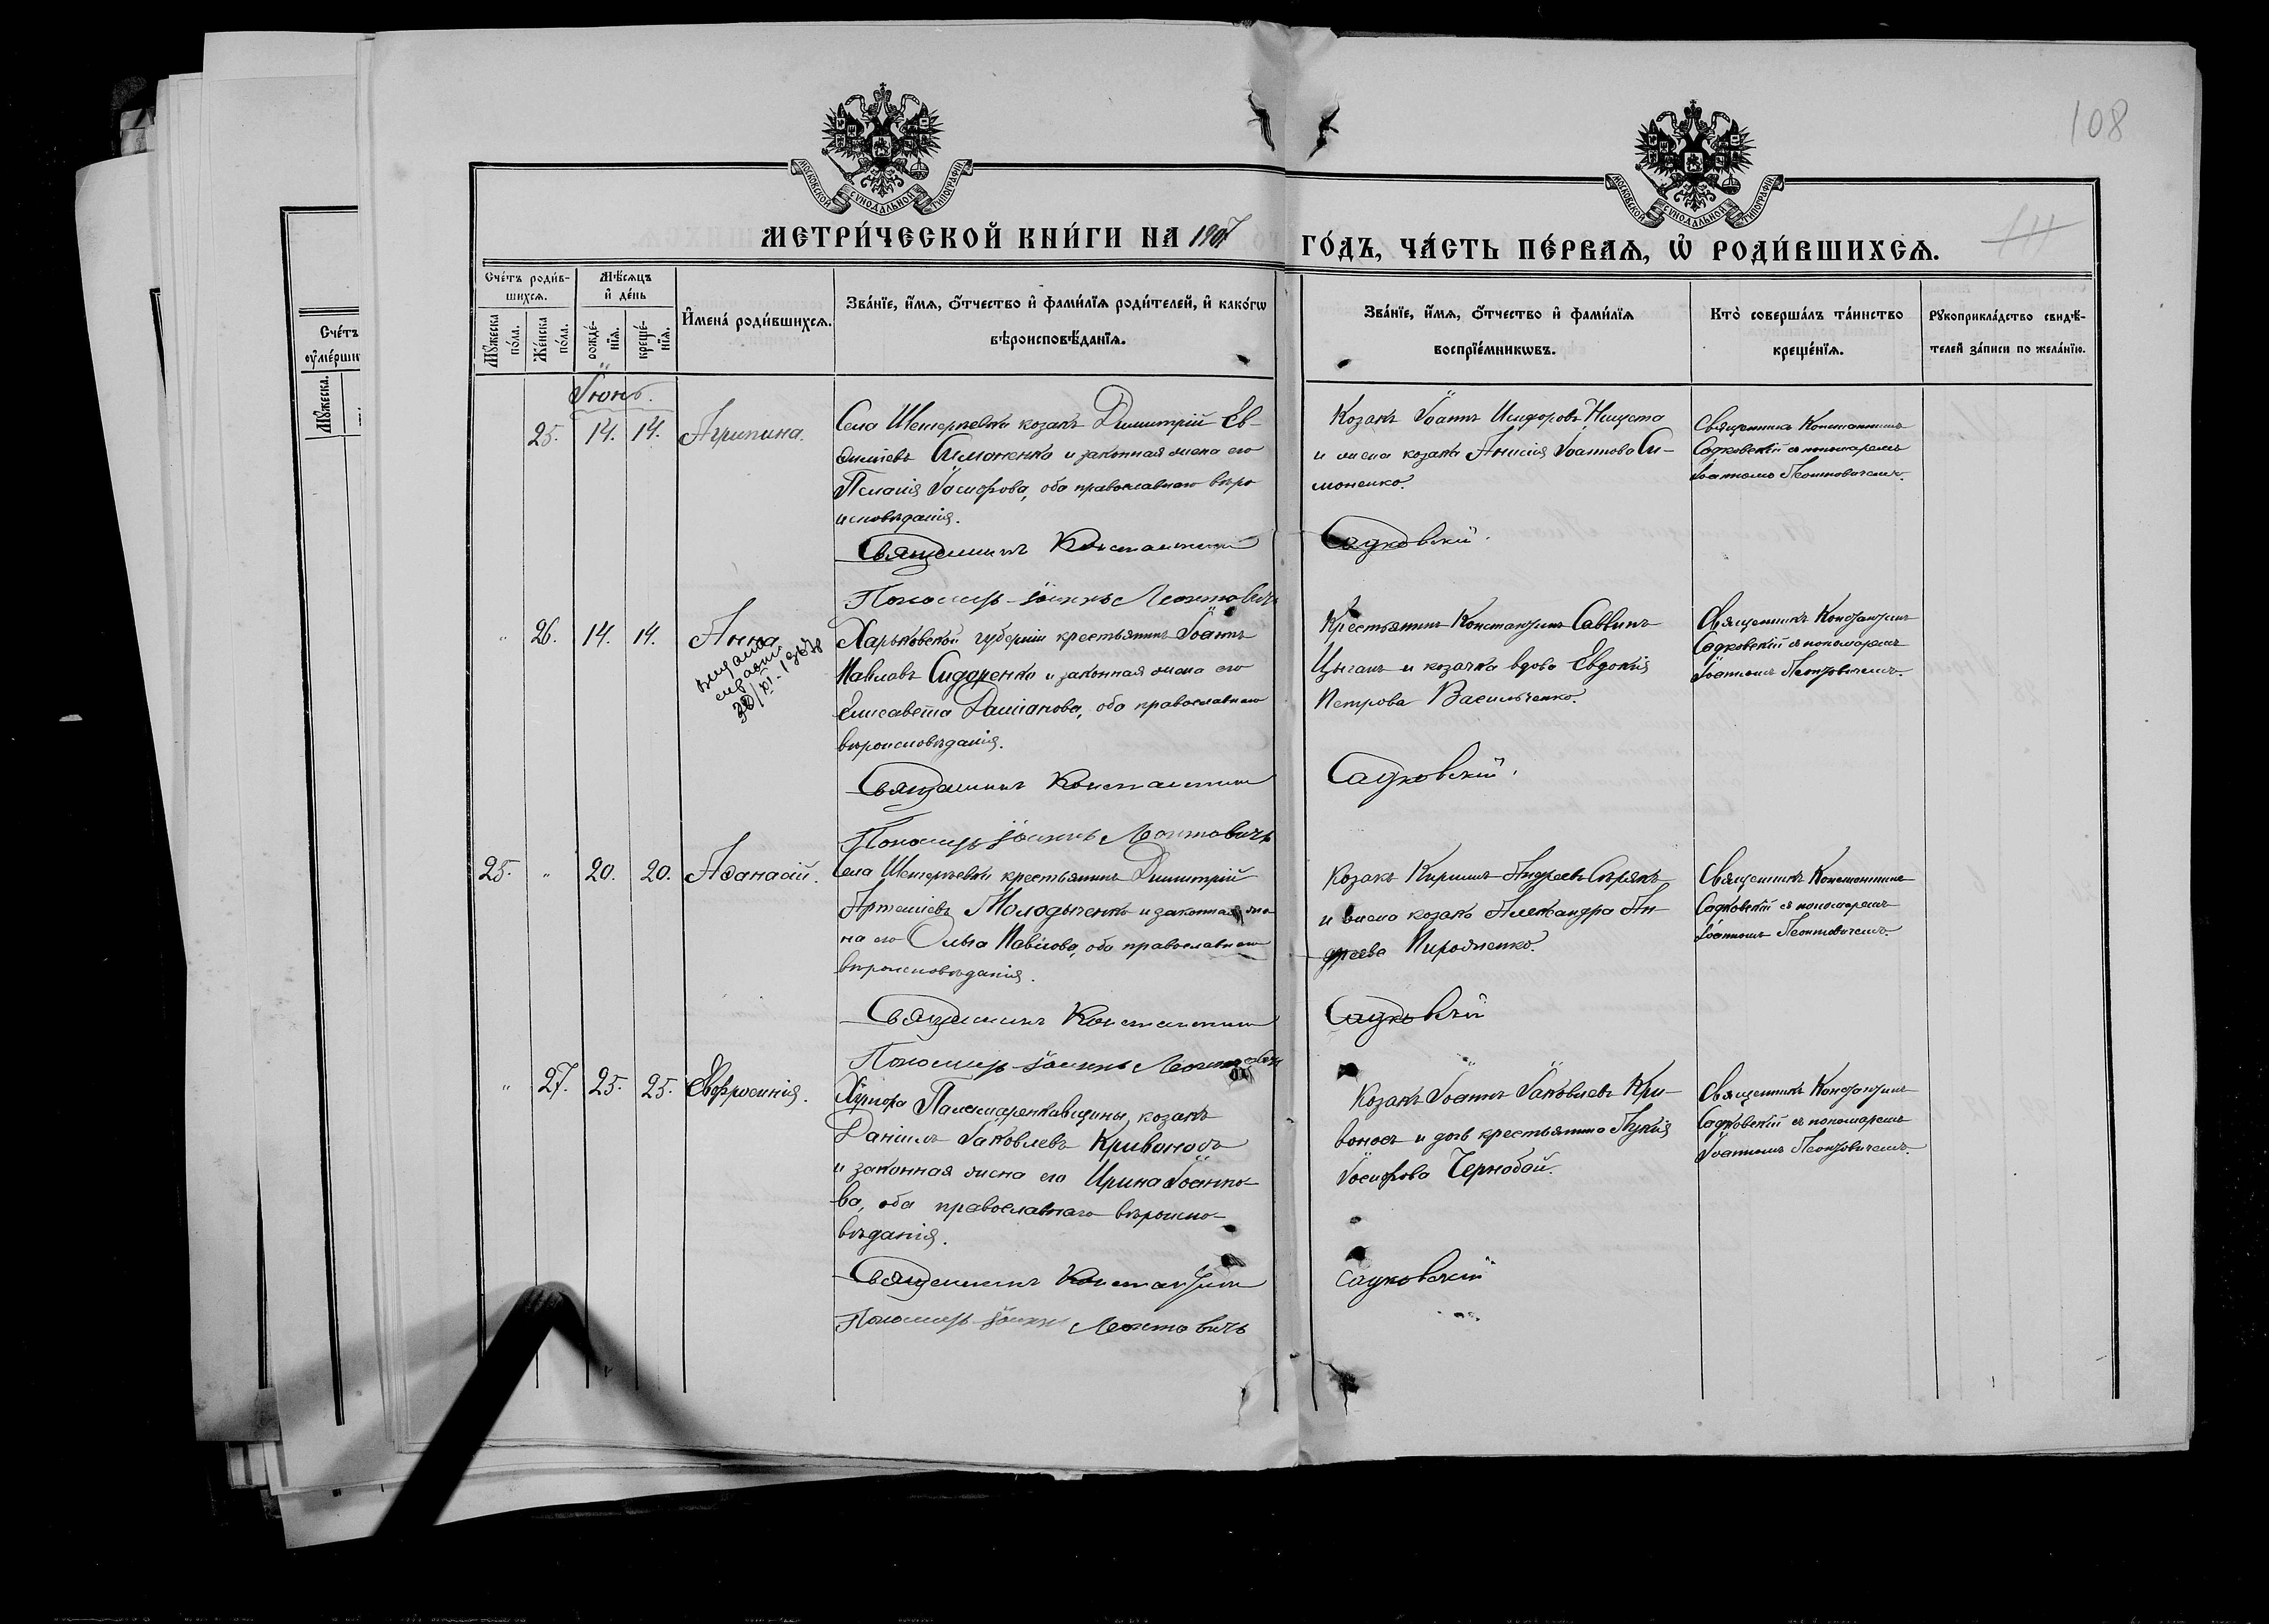 108
МОСКОВСКОЙ СѴНОДАЛЬНОЙ ТИПОГРАФІИ
МОСКОВСКОЙ СѴНОДАЛЬНОЙ ТИПОГРАФІИ
МЕТРИ́ЧЕСКОЙ КНИ́ГИ НА 1907
ГО́ДЪ, ЧА́СТЬ ПЕ́РВАѦ, Ѡ҆ РОДИ́ВШИХСѦ.
Сче́тъ роди́в-
шихсѧ.
Мꙋ́жеска по́ла.
Же́нска по́ла.
Мѣ́сѧцъ
и҆ де́нь
рожде́-
нїѧ.
креще́-
нїѧ.
И҆мена̀ роди́вшихсѧ.
Зва́нїе, и҆́мѧ, ѻ҆́тчество и҆ фами́лїѧ роди́телей, и҆ како́гѡ
вѣроисповѣ́данїѧ.
Зва́нїе, и҆́мѧ, ѻ҆́тчество и҆ фами́лїѧ
воспрїе́мникѡвъ.
Кто̀ соверша́лъ та́инство
креще́нїѧ.
Рꙋкоприкла́дство свидѣ́-
телей за́писи по жела́нїю.
Сче́тъ
Мꙋ́жеска.
Іюнь.
25. 14. 14. Агрипина.
Села козакъ Димитрій Ев-
Симоненко и законная жена его
Пелагія оба православнаго вѣро
исповѣданія.
Священникъ Константинъ
Пономарь Іоаннъ Леонтовичъ
Козакъ Іоаннъ Исидоровъ Нищета
и жена козака Анисія Іоаннова Си-
моненко.
Садковскій.
Священникъ Константинъ
Садковскій съ пономаремъ
Іоанномъ Леонтовичемъ.
" 26. 14. 14. Анна
28/XI-1967
Харьковской губерніи крестьянинъ Іоаннъ
Павловъ Сидоренко и законная жена его
Елисавета Даміанова, оба православнаго
вѣроисповѣданія.
Священникъ Константинъ
Пономарь Іоаннъ Леонтовичъ
Крестьянинъ Константинъ Саввинъ
Цыганъ и козачка вдова Евдокія
Петрова Васильченко.
Садковскій.
Священникъ Константинъ
Садковскій съ пономаремъ
Іоанномъ Леонтовичемъ.
25. " 20. 20. Аѳанасій.
Села крестьянинъ Димитрій
Артеміевъ Молодыченко и законная же-
на его Ольга Павлова, оба православнаго
вѣроисповѣданія.
Священникъ Константинъ
Пономарь Іоаннъ Леонтовичъ
Козакъ Кириллъ Андреевъ Сѣрякъ
и жена козака Александра Ан-
дреева Пироженко.
Садковскій
Священникъ Константинъ
Садковскій съ пономаремъ
Іоанномъ Леонтовичемъ.
" 27. 25. 25. Евфросинія.
Хутора козакъ
Даніилъ Іаковлевъ Кривоносъ
и законная жена его Ирина Іоанно-
ва, оба православнаго вѣроиспо-
вѣданія.
Священникъ Константинъ
Пономарь Іоаннъ Леонтовичъ
Козакъ Іоаннъ Іаковлевъ Кри-
воносъ и дочь крестьянина Лукія
Іосифова Чернобай.
Садковскій
Священникъ Константинъ
Садковскій съ пономаремъ
Іоанномъ Леонтовичемъ.